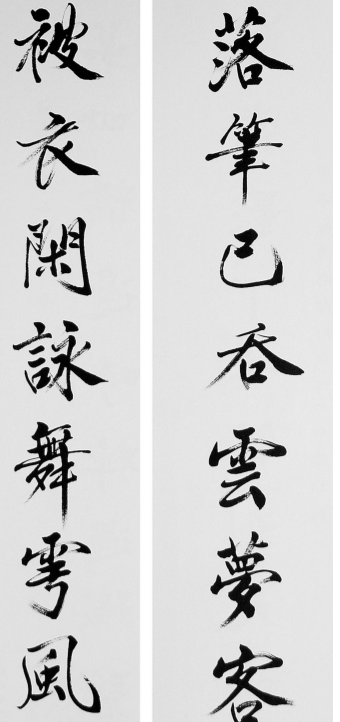 落筆已吞雲夢客
被衣閑詠舞雩風